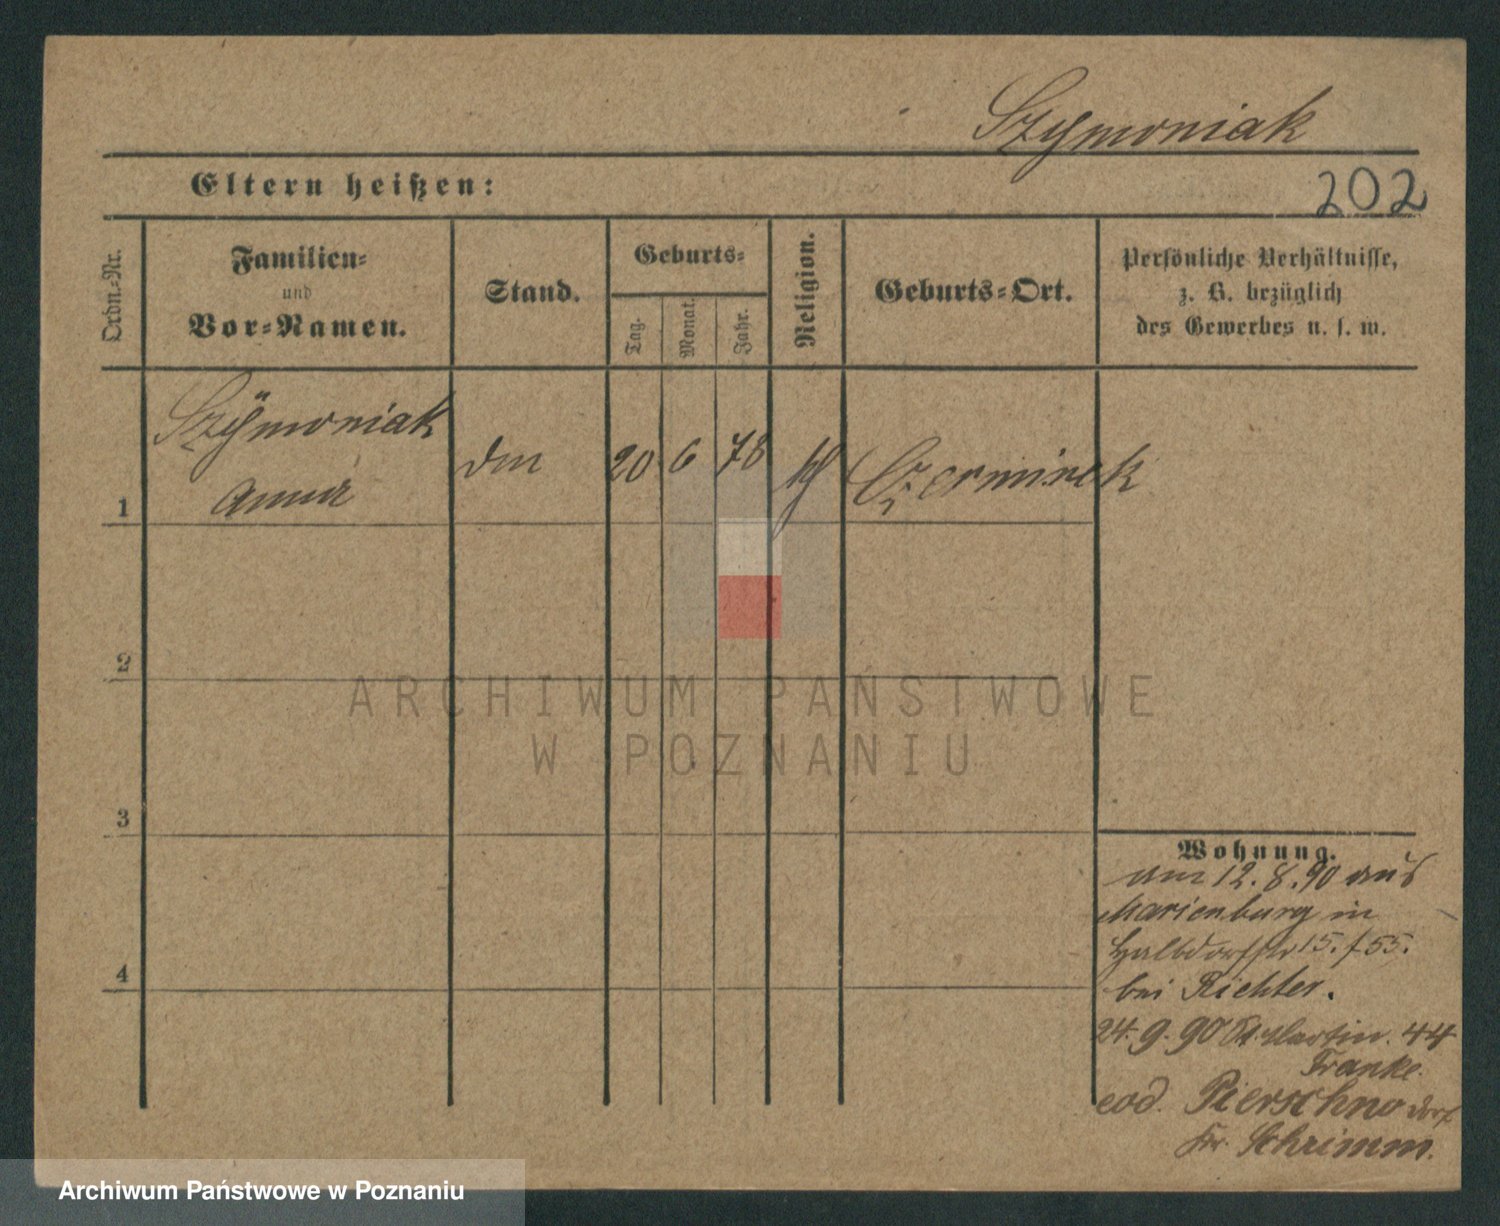 Szymoniak
Eltern heißen:
202
Ordn.-Nr.
Familien-
und
Vor-Namen.
Stand.
Geburts-
Tag.
Monat.
Jahr.
Religion.
Geburts-Ort.
Persönliche Verhältnisse,
z. B. bezüglich
des Gewerbes u. s. w.
Szÿmoniak
Anna
1
20
6
78
Czerminek
2
3
4
Wohnung.
am 12.8.90 aus
Marienburg in
Halbdorfstr 15. f 55.
bei Richter.
24.9.90 St. Martin. 44
Franke.
eod. Pierschno dorf
Kr. Schrimm.
ARCHIWUM PAŃSTWOWE
W POZNANIU
Archiwum Państwowe w Poznaniu